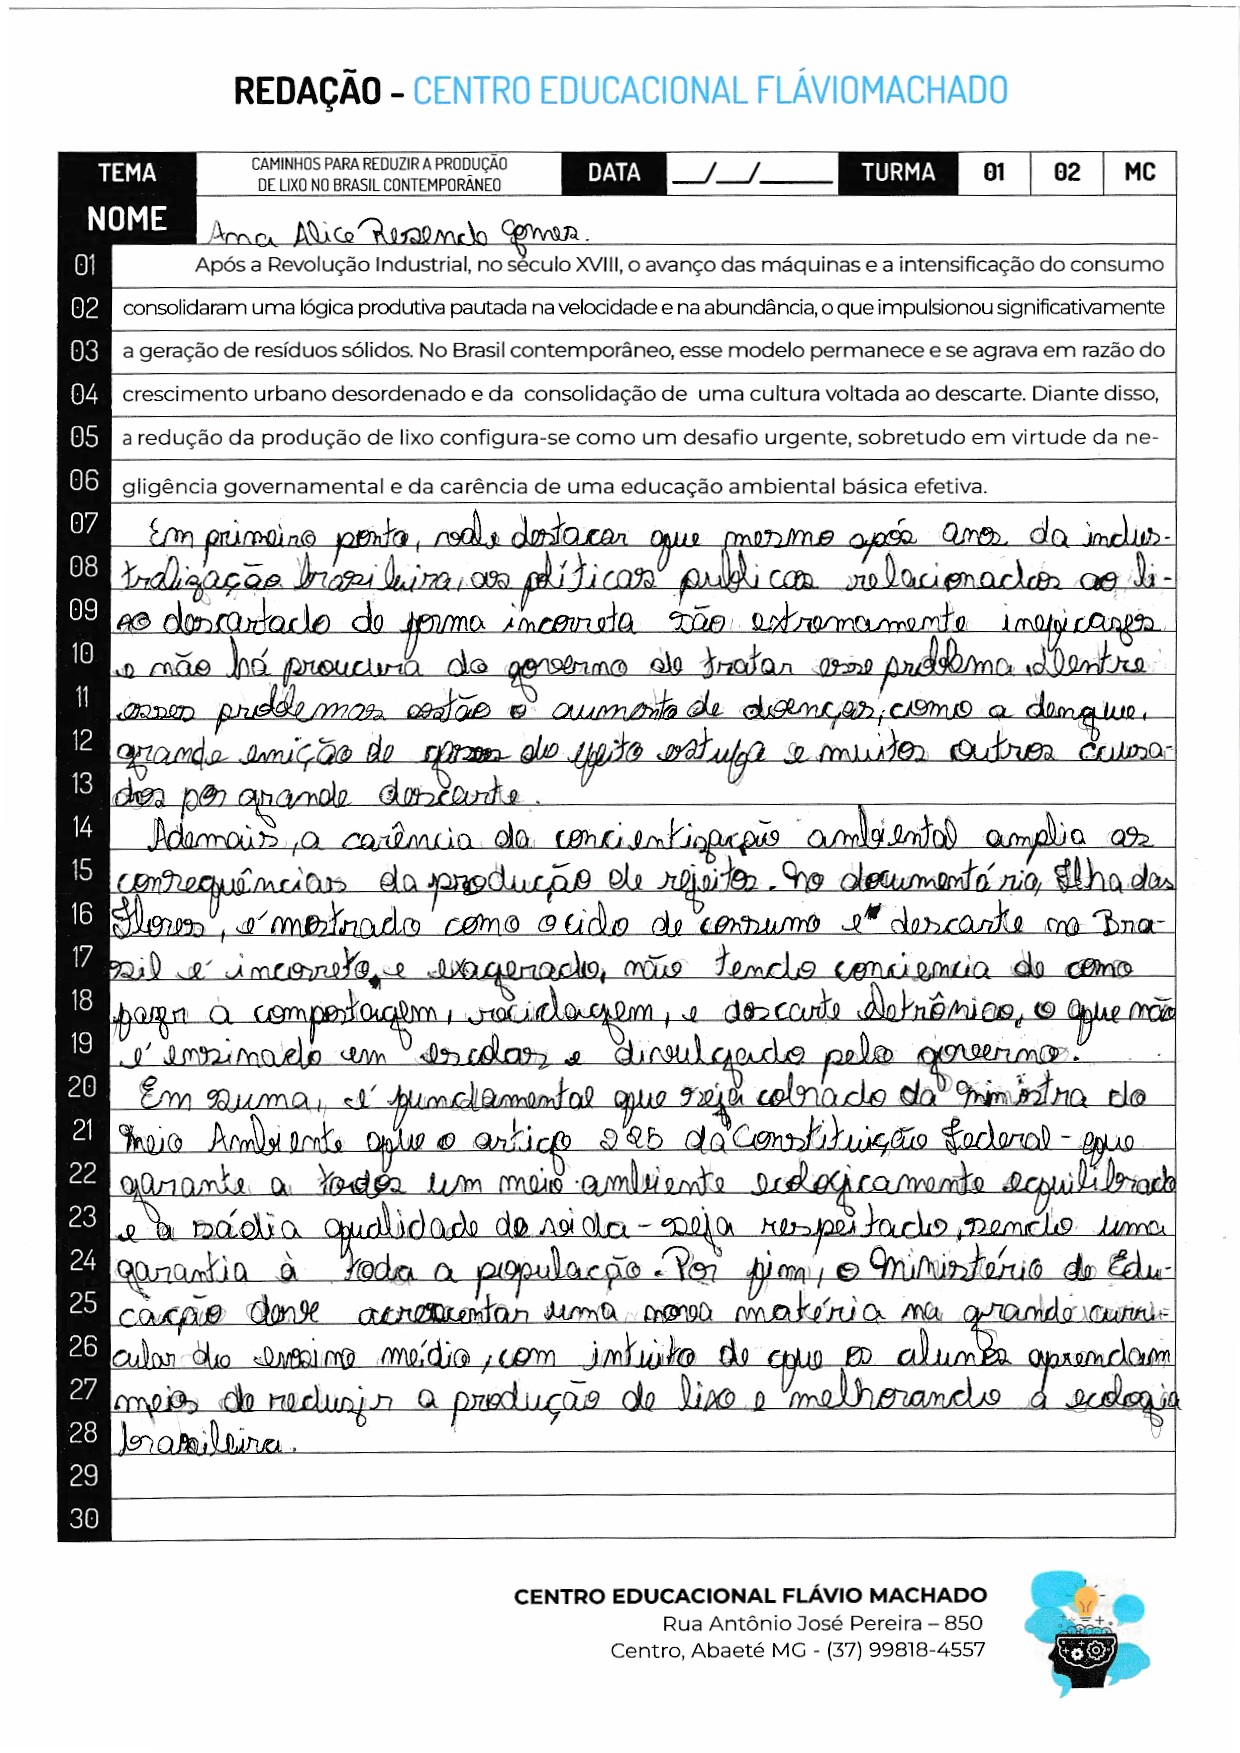 REDAÇÃO - CENTRO EDUCACIONAL FLÁVIOMACHADO
TEMA CAMINHOS PARA REDUZIR A PRODUÇÃO DE LIXO NO BRASIL CONTEMPORÂNEO DATA __/__/____ TURMA 01 02 MC
NOME Ana Alice Resende Gomes.
01 Após a Revolução Industrial, no século XVIII, o avanço das máquinas e a intensificação do consumo
02 consolidaram uma lógica produtiva pautada na velocidade e na abundância, o que impulsionou significativamente
03 a geração de resíduos sólidos. No Brasil contemporâneo, esse modelo permanece e se agrava em razão do
04 crescimento urbano desordenado e da consolidação de uma cultura voltada ao descarte. Diante disso,
05 a redução da produção de lixo configura-se como um desafio urgente, sobretudo em virtude da ne-
06 gligência governamental e da carência de uma educação ambiental básica efetiva.
07 Em primeiro ponto, vale destacar que mesmo após anos da indus-
08 tralização brasileira, as políticas publicas relacionados ao li-
09 xo descartado de forma incorreta são extremamente ineficazes
10 e não há proucura do governo de tratar esse problema, dentre
11 esses problemas estão o aumento de doenças, como a dengue,
12 grande emição de gases do efeito estufa e muitos outros causa-
13 dos por grande descarte.
14 Ademais, a carência da concientização ambiental amplia as
15 consequências da produção de rejeitos. No documentário, Ilha das
16 Flores, é mostrado como o ciclo de consumo e descarte no Bra-
17 sil é incorreto e exagerado, não tendo conciencia de como
18 fazer a compostagem, reciclagem, e descarte eletrônico, o que não
19 é ensinado em escolas e divulgado pelo governo.
20 Em suma, é fundamental que seja cobrado da ministra do
21 Meio Ambiente que o artigo 225 da Constituição Federal - que
22 garante a todos um meio ambiente ecologicamente equilibrado
23 e a sádia qualidade de vida - seja respeitado, sendo uma
24 garantia à toda a população. Por fim, o Ministério de Edu-
25 cação deve acrescentar uma nova matéria na grande curri-
26 cular do ensino médio, com intuito de que os alunos aprendam
27 meios de reduzir a produção de lixo e melhorando a ecologia
28 brasileira.
29
30
CENTRO EDUCACIONAL FLÁVIO MACHADO
Rua Antônio José Pereira – 850
Centro, Abaeté MG - (37) 99818-4557